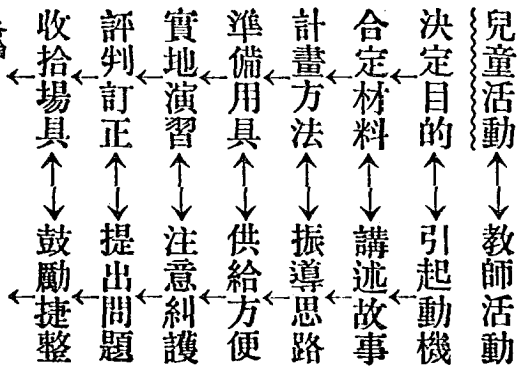 兒童活動↔教師活動
決定目的↔引起動機
合定材料↔講述故事
計畫方法↔振導思路
準備用具↔供給方便
實地演習↔注意糾護
評判訂正↔提出問題
收拾場具↔鼓勵捷整